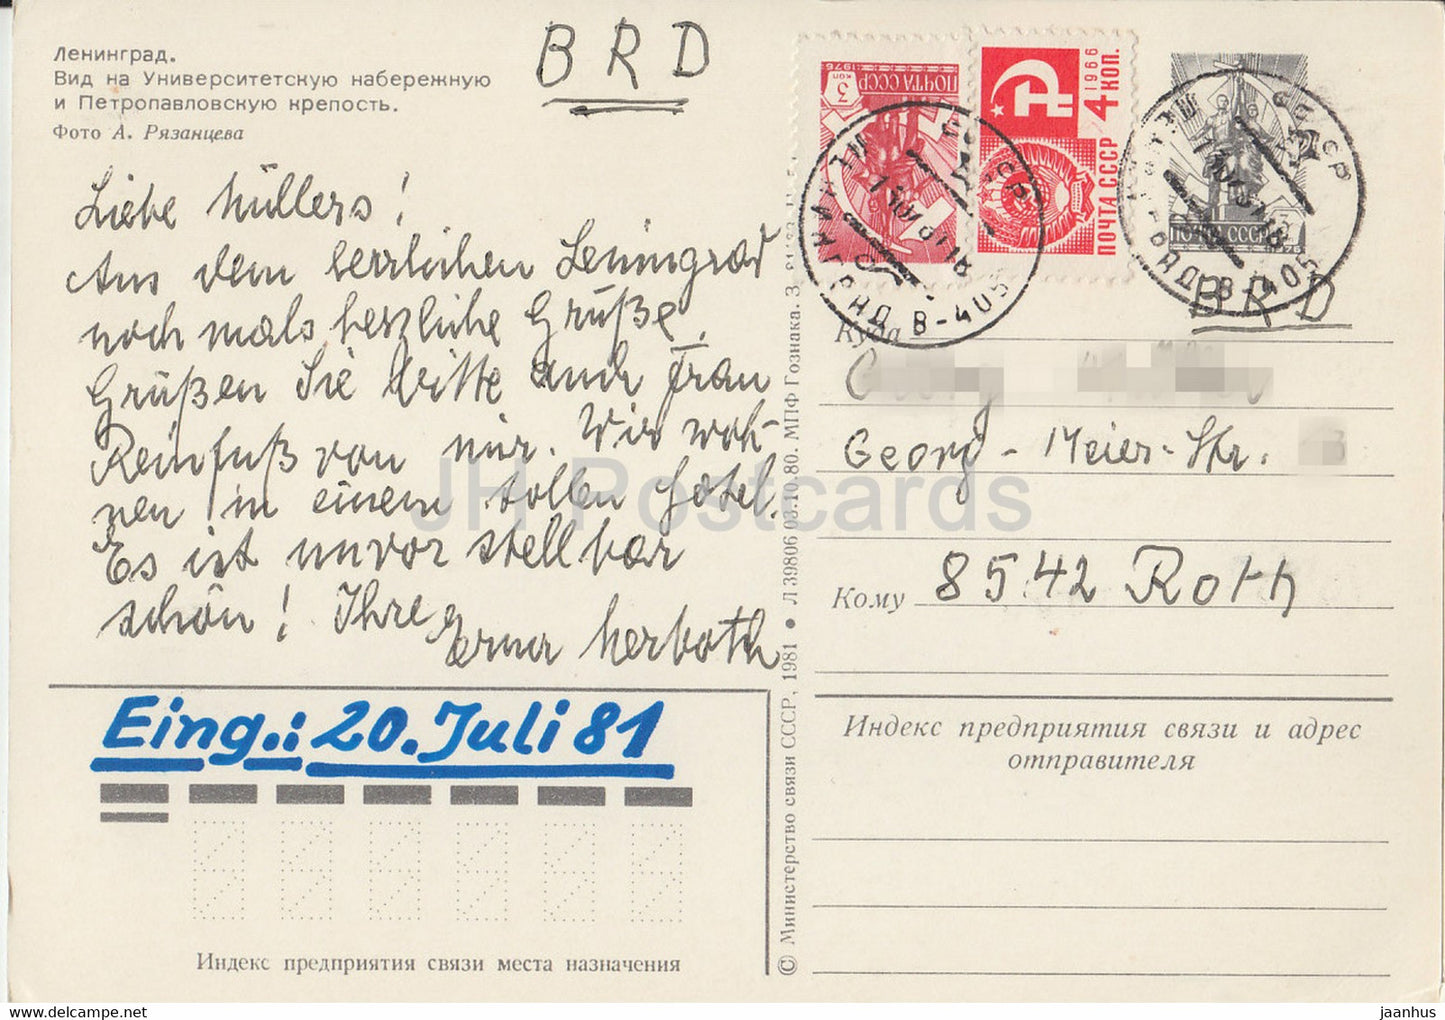 Ленинград.
Вид на Университетскую набережную
и Петропавловскую крепость.
Фото А. Рязанцева
BRD
Liebe Müllers!
Aus dem herrlichen Leningrad
noch mals herzliche Grüße.
Grüßen Sie bitte auch Frau
Reinfuß von mir. Wir woh-
nen in einem tollen Hotel.
Es ist unvor stellbar
schön! Ihre Erna Herboth
Eing.: 20. Juli 81
Индекс предприятия связи места назначения
© Министерство связи СССР, 1981 • Л 39806 03.10.80. МПФ Гознака. З.
3 КОП
1976
ПОЧТА СССР
1966
4 КОП.
ПОЧТА СССР
ПОЧТА СССР
СССР
В-405
СССР
В-405
BRD
Куда
Georg-Meier-Str.
Кому
8542 Roth
Индекс предприятия связи и адрес
отправителя
JH Postcards
jaanhus
www.delcampe.net